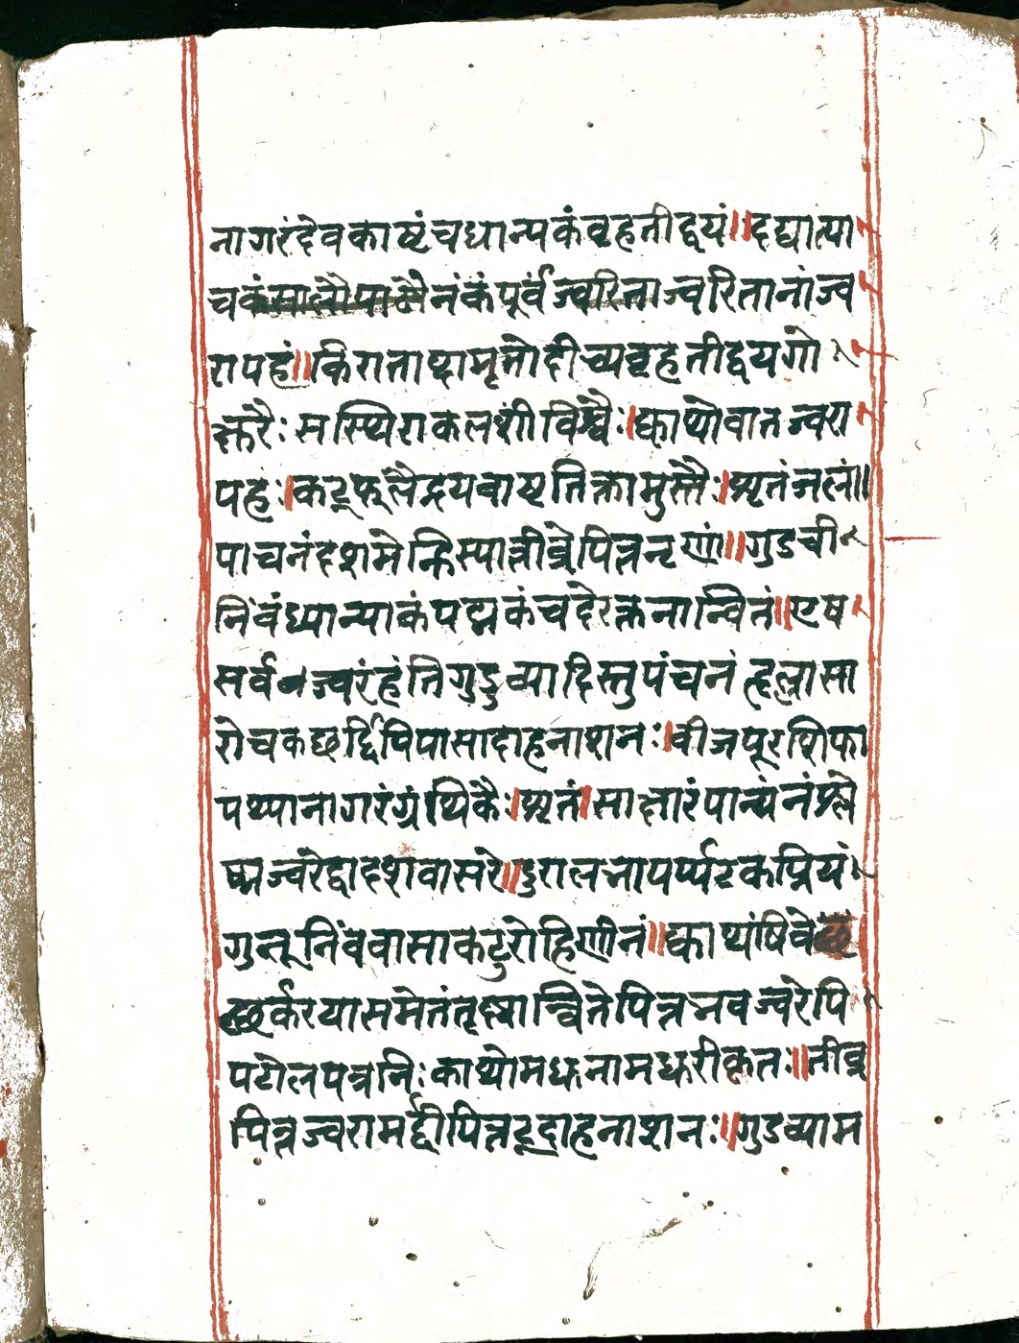 नागरंदेवकाष्टंचधान्यकंवृहतीद्वयं॥दद्यात्पा
चकंसालौपाठौनंकंपूर्वंज्वरिताज्वरितानांज्व
रापहं॥किराताष्दामृतोदीच्यवृहतीद्वयगो
क्षुरैःसस्थिराकलशीविश्वैः।क्वाथोवातज्वरा
पहः।कट्फलैद्रयवाष्टतिक्तामुस्तैः।शृतंजलं॥
पाचनंदशमेन्हिस्यात्तीव्रेपित्तनृणां॥गुडची
निंवंध्यान्याकंपद्मकंचदेरक्तनान्वितं॥एष
सर्वज्वरंहंतिगुडुव्यादिस्तुपंचनंत्हल्लासा
रोचकछर्द्दिपिपासादाहनाशनः।वीजपूरशिफा
पथ्यानागरंग्रंथिकैः।शृतं।साक्षारंपान्यंनंश्ले
ष्मज्वरेद्वादशवासरे॥दुरालभापर्प्पटकप्रियं
गुभूनिंववासाकटुरोहिणीनं॥क्वाथंषिवे
छर्करयासमेतंतृष्मान्वितेपित्तभवज्वरेपि
पटोलपत्रनिःक्वाथोमधुनामधुरीकृतः॥तीव्र
पित्तज्वरामर्द्दीपित्ततृड्दाहनाशनः॥गुडव्याम